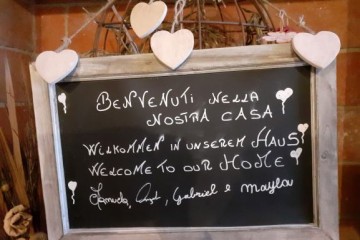 BENVENUTI NELLA
NOSTRA CASA
WILLKOMMEN IN UNSEREM HAUS
WELCOME TO OUR HOME
Gabriel e mayla